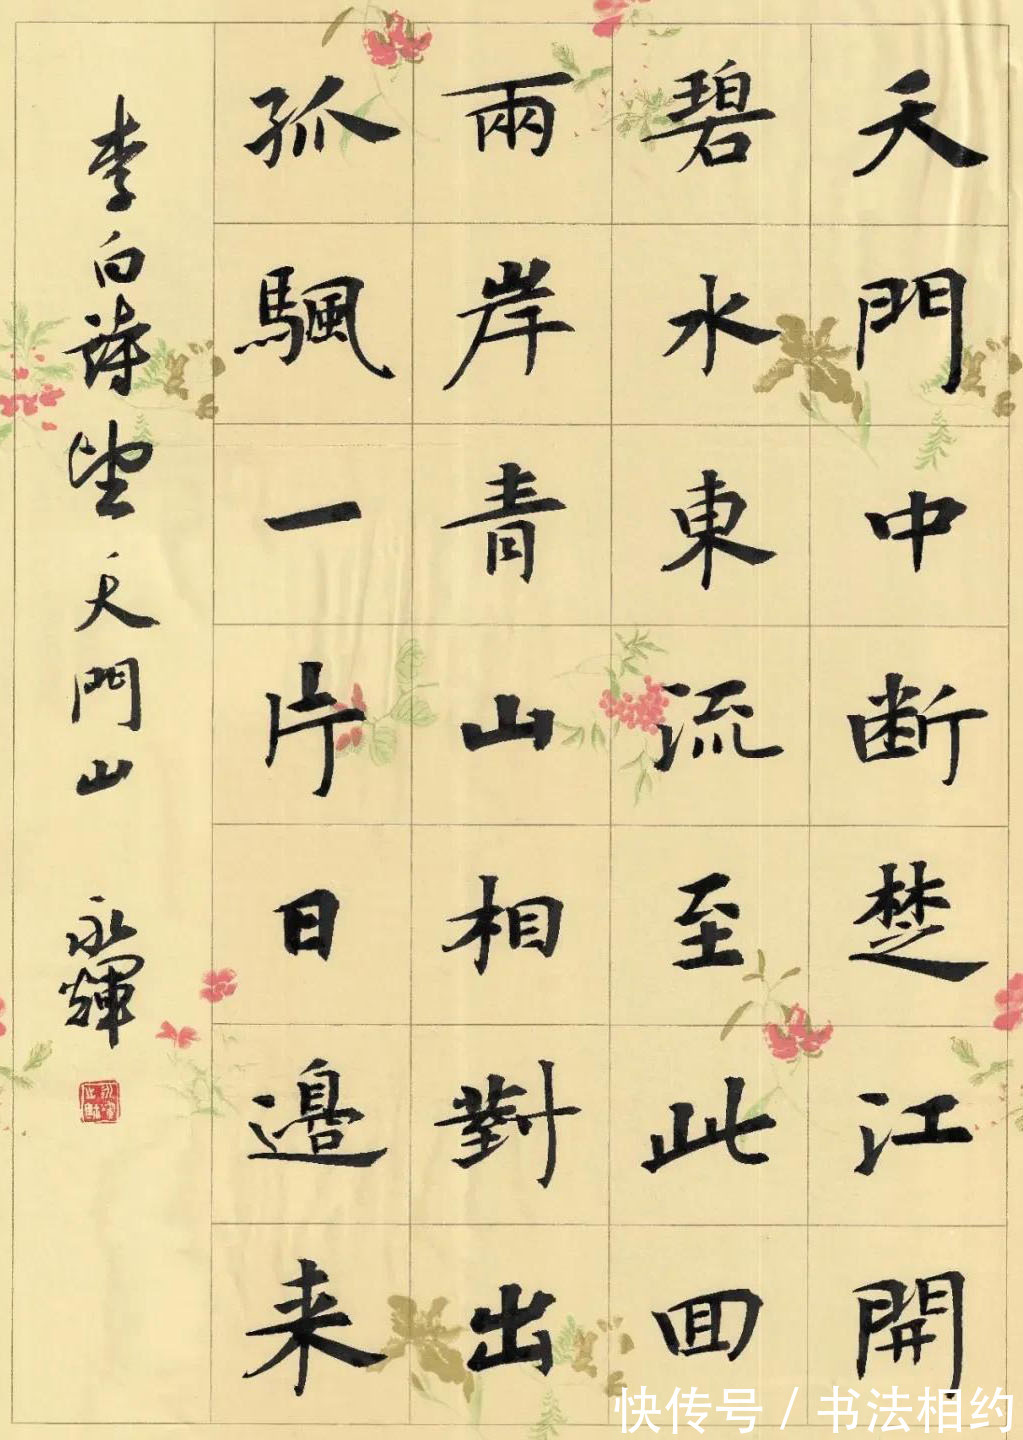 天門中断楚江開
碧水東流至此回
兩岸青山相對出
孤颿一片日邊来
李白詩望天門山
永輝
快传号 / 书法相约